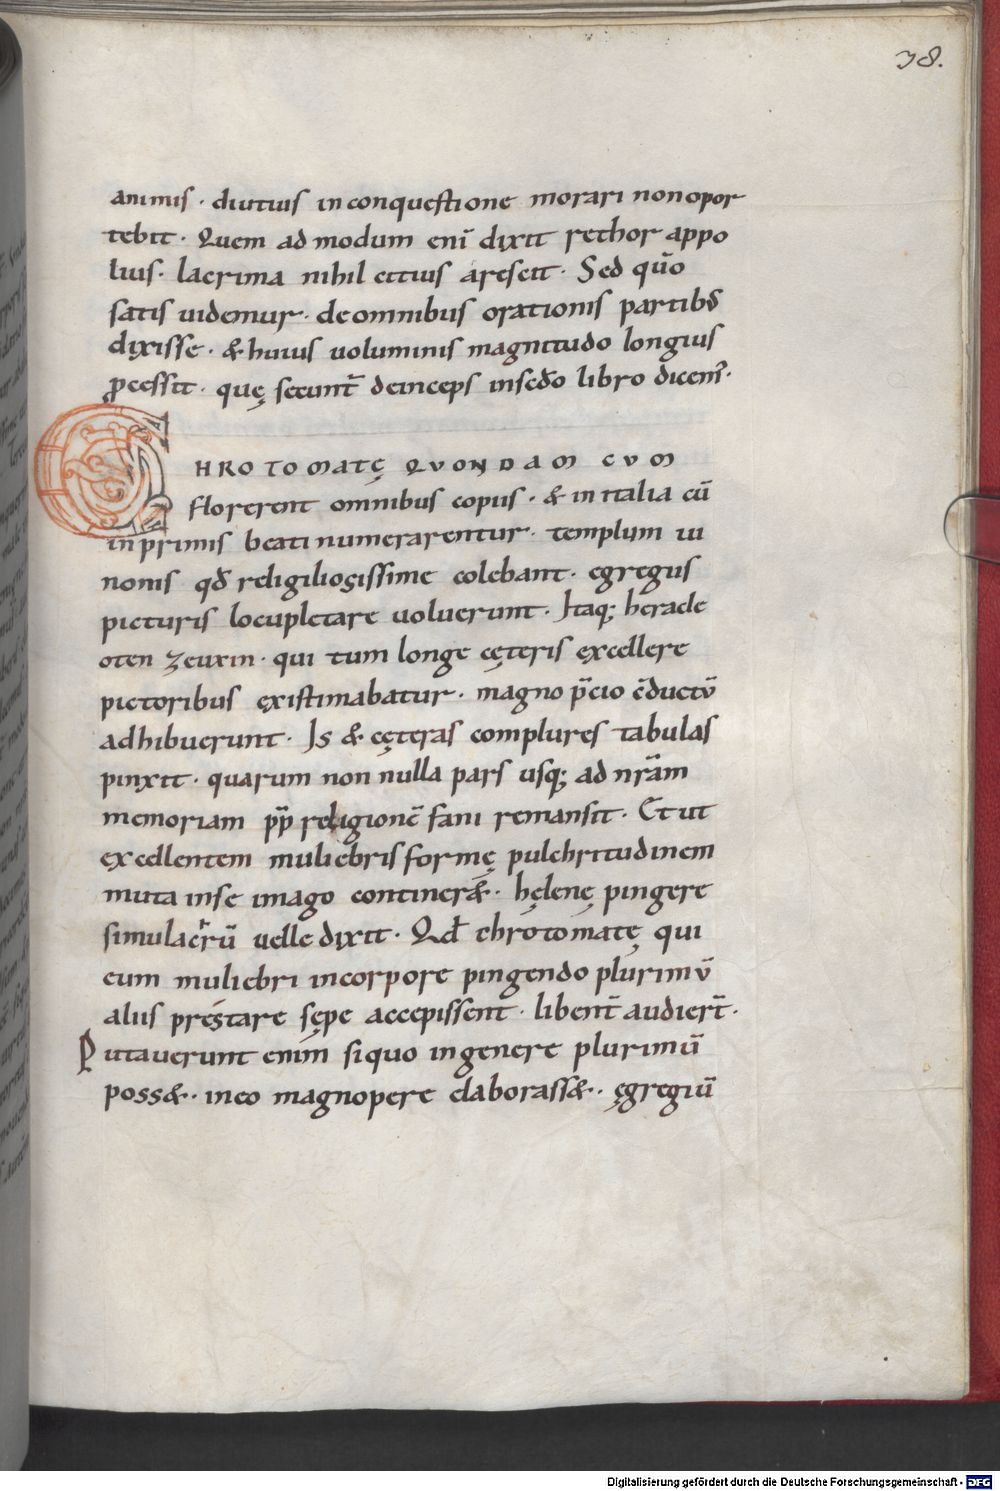 38.
animis · diutius inconquestione morari nonopor
tebit · Quem ad modum eni̅ dixit rethor appo
lius · lacrima nihil citius arescit · Sed qu̅o
satis uidemur · deomnibus orationis partib;
dixisse · & huius uoluminis magnitudo longius
ꝓcessit · quę secunt̅ deinceps insed̅o libro dicem᾽·
CHROTOMATĘ QUONDAM CUM
florerent omnibus copiis · & initalia cu̅
inprimis beati numerarentur · templum iu
nonis qd̅ religiliosissime colebant · egregiis
picturis locupletare uoluerunt · Itaq; heracle
oten zeuxin · qui tum longe cęteris excellere
pictoribus existimabatur · magno p̅cio c̅ductu̅
adhibuerunt · Is & cęteras complures tabulas
pinxit · quarum non nulla pars usq; ad nr̅am
memoriam pp̅ religione̅ fani remansit · Et ut
excellentem muliebris formę pulchritudinem
muta inse imago continer& · hęlenę pingere
simulacru̅ uelle dixit · Qd̅ chrotomatę qui
eum muliebri incorpore pingendo plurimu̅
aliis pręstare sępe accepissent · libent̅ audier̅t ·
Putauerunt enim siquo ingenere plurimu̅
poss& · ineo magnopere elaborass& · ęgregiu̅
Digitalisierung gefördert durch die Deutsche Forschungsgemeinschaft - DFG